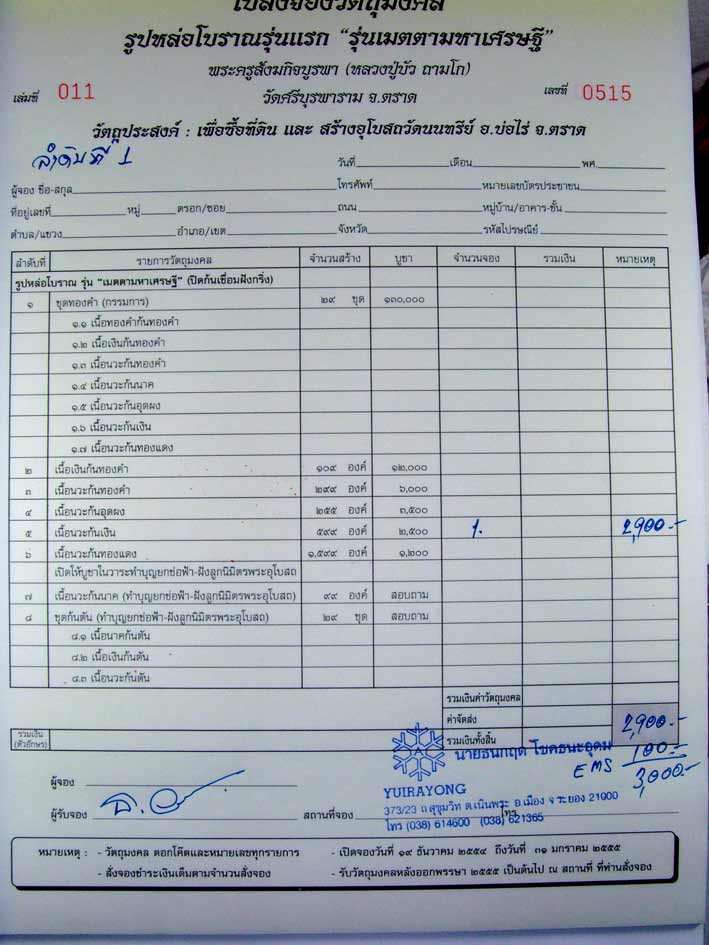 ใบสั่งจองวัตถุมงคล
รูปหล่อโบราณรุ่นแรก “รุ่นเมตตามหาเศรษฐี”
พระครูสังฆกิจบูรพา (หลวงปู่บัว ถามโก)
เล่มที่ 011 วัดศรีบุรพาราม จ.ตราด เลขที่ 0515
วัตถุประสงค์ : เพื่อซื้อที่ดิน และ สร้างอุโบสถวัดนนทรีย์ อ.บ่อไร่ จ.ตราด
ลำดับที่ 1
วันที่ เดือน พศ.
ผู้จอง ชื่อ-สกุล โทรศัพท์ หมายเลขบัตรประชาชน
ที่อยู่เลขที่ หมู่ ตรอก/ซอย ถนน หมู่บ้าน/อาคาร-ชั้น
ตำบล/แขวง อำเภอ/เขต จังหวัด รหัสไปรษณีย์
ลำดับที่ รายการวัตถุมงคล จำนวนสร้าง บูชา จำนวนจอง รวมเงิน หมายเหตุ
รูปหล่อโบราณ รุ่น “เมตตามหาเศรษฐี” (ปิดก้นเชื่อมฝังกริ่ง)
๑ ชุดทองคำ (กรรมการ) ๒๙ ชุด ๑๓๐,๐๐๐
๑.๑ เนื้อทองคำก้นทองคำ
๑.๒ เนื้อเงินก้นทองคำ
๑.๓ เนื้อนวะก้นทองคำ
๑.๔ เนื้อนวะก้นนาค
๑.๕ เนื้อนวะก้นอุดผง
๑.๖ เนื้อนวะก้นเงิน
๑.๗ เนื้อนวะก้นทองแดง
๒ เนื้อเงินก้นทองคำ ๑๐๙ องค์ ๑๒,๐๐๐
๓ เนื้อนวะก้นทองคำ ๒๙๙ องค์ ๖,๐๐๐
๔ เนื้อนวะก้นอุดผง ๒๕๕ องค์ ๓,๕๐๐
๕ เนื้อนวะก้นเงิน ๕๙๙ องค์ ๒,๕๐๐ 1. 2,900.-
๖ เนื้อนวะก้นทองแดง ๑,๕๙๙ องค์ ๑,๒๐๐
เปิดให้บูชาในวาระทำบุญยกช่อฟ้า-ฝังลูกนิมิตรพระอุโบสถ
๗ เนื้อนวะก้นนาค (ทำบุญยกช่อฟ้า-ฝังลูกนิมิตรพระอุโบสถ) ๙๙ องค์ สอบถาม
๘ ชุดก้นตัน (ทำบุญยกช่อฟ้า-ฝังลูกนิมิตรพระอุโบสถ) ๒๙ ชุด สอบถาม
๘.๑ เนื้อนาคก้นตัน
๘.๒ เนื้อเงินก้นตัน
๘.๓ เนื้อนวะก้นตัน
รวมเงินค่าวัตถุมงคล
ค่าจัดส่ง 2,900.-
รวมเงิน (ตัวอักษร) รวมเงินทั้งสิ้น
นายธนกฤต โชคธนะอุดม
EMS 100.-
3,000.-
ผู้จอง
YUIRAYONG
373/23 ถ.สุขุมวิท ต.เนินพระ อ.เมือง จ.ระยอง 21000
ผู้รับจอง สถานที่จอง โทร
โทร (038) 614600 (038) 621365
หมายเหตุ : - วัตถุมงคล ตอกโค๊ตและหมายเลขทุกรายการ - เปิดจองวันที่ ๑๙ ธันวาคม ๒๕๕๔ ถึงวันที่ ๓๑ มกราคม ๒๕๕๕
- สั่งจองชำระเงินเต็มตามจำนวนสั่งจอง - รับวัตถุมงคลหลังออกพรรษา ๒๕๕๕ เป็นต้นไป ณ สถานที่ ที่ท่านสั่งจอง